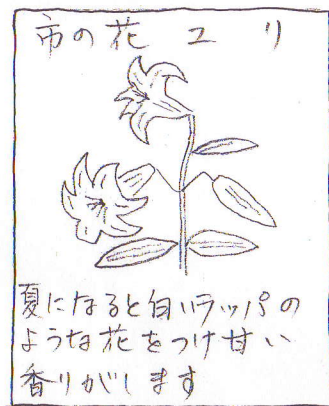 市の花 ユリ
夏になると白いラッパの
ような花をつけ甘い
香りがします